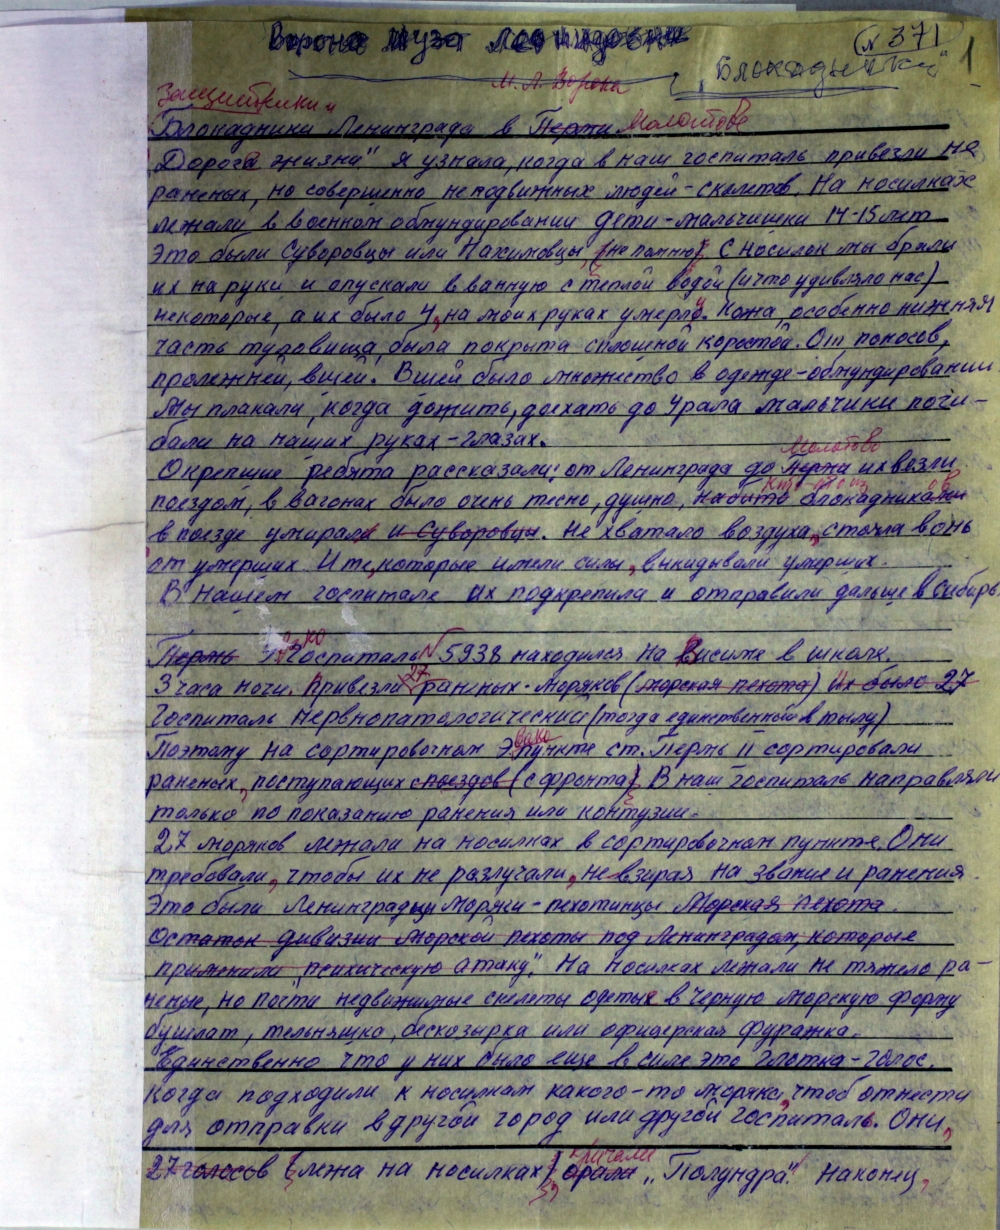 Ворона Муза Леонидовна
(N 371) 1
"Блокадники"
М. Л. Ворона
Защитники и
Блокадники Ленинграда в Перми Молотове
"Дорога жизни" я узнала, когда в наш госпиталь привезли не
раненых, но совершенно неподвижных людей-скелетов. На носилках
лежали в военном обмундировании дети-мальчишки 14-15 лет
Это были Суворовцы или Нахимовцы (не помню). С носилок мы брали
их на руки и опускали в ванную с теплой водой (и что удивляло нас)
некоторые, а их было 4, на моих руках умерло. Кожа, особенно нижняя
часть туловища, была покрыта сплошной коростой. От поносов,
пролежней, вшей. Вшей было множество в одежде-обмундировании
Мы плакали, когда дожить, доехать до Урала мальчики поги-
бали на наших руках-глазах.
Молотова
Окрепшие ребята рассказали: от Ленинграда до Перми их везли
поездом, в вагонах было очень тесно, душно, набито блокадниками
в поезде умирали и Суворовцы. Не хватало воздуха, стояла вонь
от умерших И те, которые имели силы, выкидывали умерших.
В нашем госпитале их подкрепили и отправили дальше в Сибирь
Пермь Э/госпиталь N 5938 находился на Висиме в школе
3 часа ночи. Привезли 27 раненых-моряков (морская пехота) Их было 27
Госпиталь нервнопатологический (тогда единственный в тылу)
Поэтому на сортировочном Эвакопункте ст. Пермь II сортировали
раненых, поступающих с поездов (с фронта). В наш госпиталь направляли
только по показанию ранения или контузии.
27 моряков лежали на носилках в сортировочном пункте. Они
требовали, чтобы их не разлучали, не взирая на звание и ранения.
Это были Ленинградцы моряки-пехотинцы Морская пехота.
Остаток дивизии Морской пехоты под Ленинградом, которые
применили "психическую атаку". На носилках лежали не тяжело ра-
неные, но почти недвижимые скелеты одетые в черную морскую форму
бушлат, тельняшка, бескозырка или офицерская фуражка.
Единственно что у них было еще в силе это глотка-голос.
Когда подходили к носилкам какого-то моряка, чтоб отнести
для отправки в другой город или другой госпиталь. Они,
кричали
27 голосов (лежа на носилках) орали "Полундра"! Наконец,